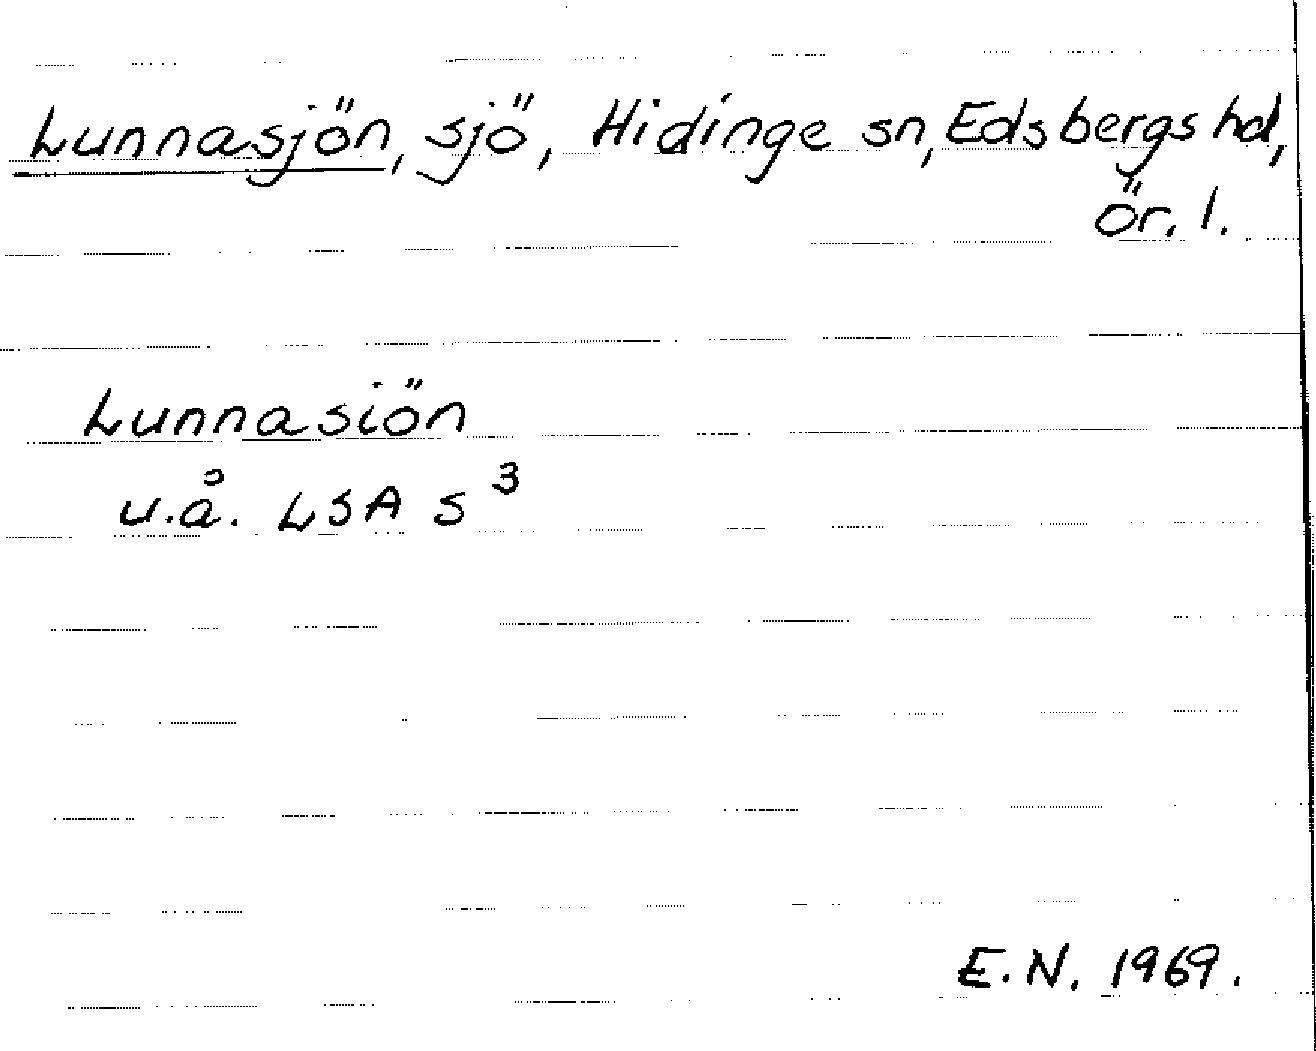 Lunnasjön, sjö, Hidinge sn, Edsbergs hd,
Ör. l.
Lunnasiön
u.å. LSA S³
E.N. 1969.